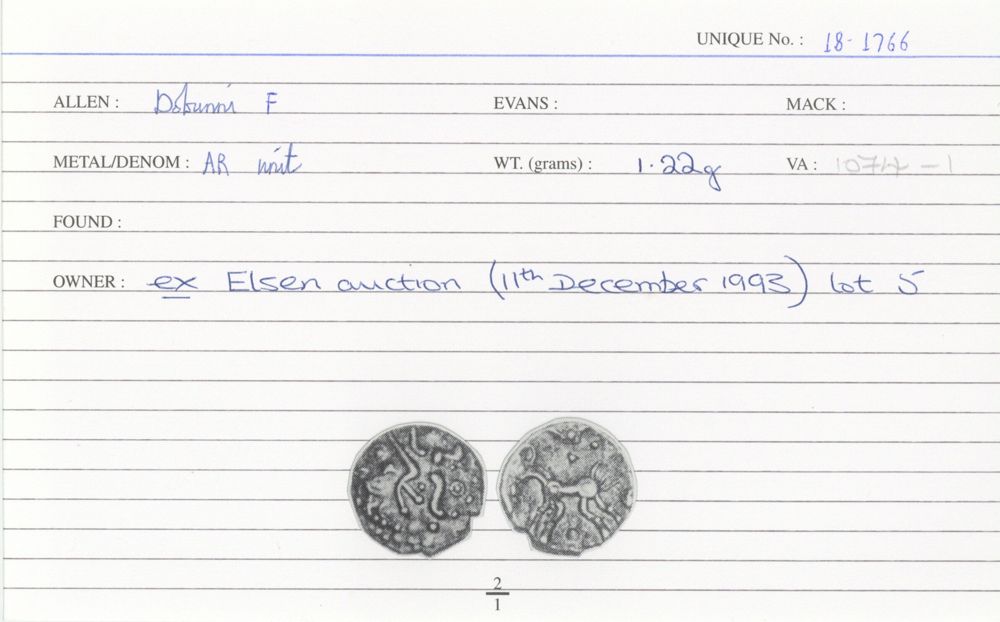 UNIQUE No. : 18-1766
ALLEN : Dobunni F EVANS : MACK :
METAL/DENOM : AR unit WT. (grams) : 1.22g VA : 1074-1
FOUND :
OWNER : ex Elsen auction (11th December 1993) lot 5
2
1